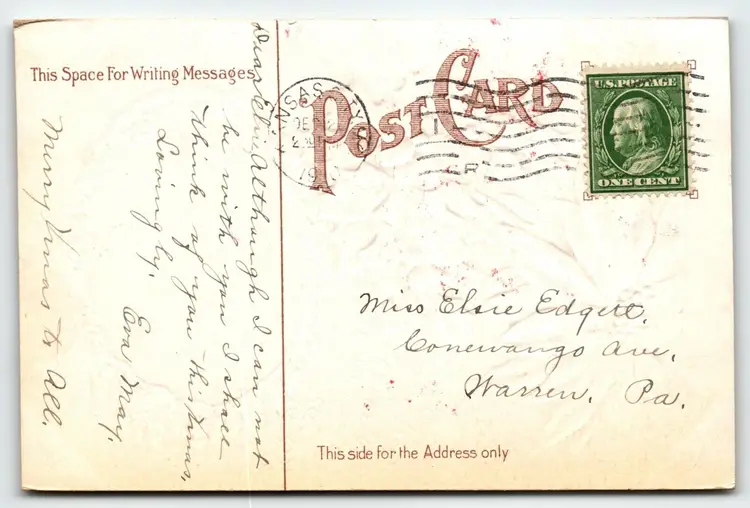 This Space For Writing Messages
Dear Elsie Although I can not
be with you I shall
think of you this Xmas.
Lovingly,
Eva May.
Merry Xmas to All.
POST CARD
U.S. POSTAGE
ONE CENT
Miss Elsie Edgett,
Conewango Ave,
Warren, Pa.
This side for the Address only